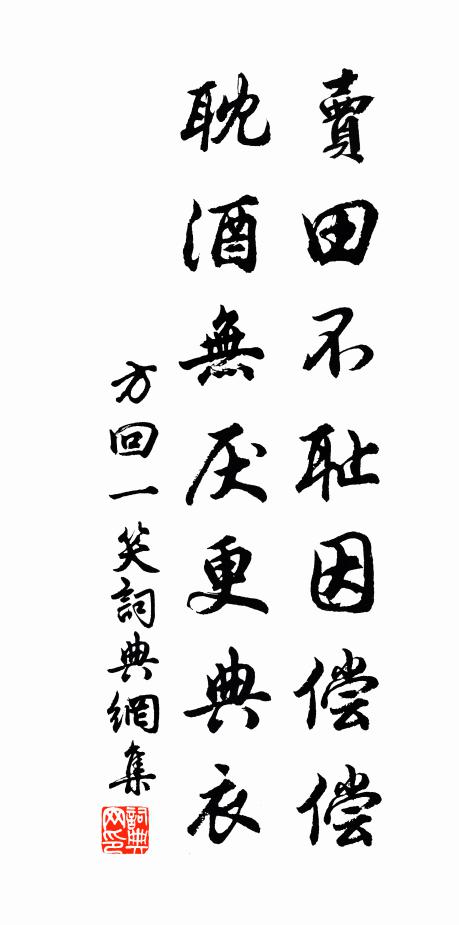 賣田不耻因偿偿
耽酒無厌更典衣
方回一笑詞典網集
詞典网印